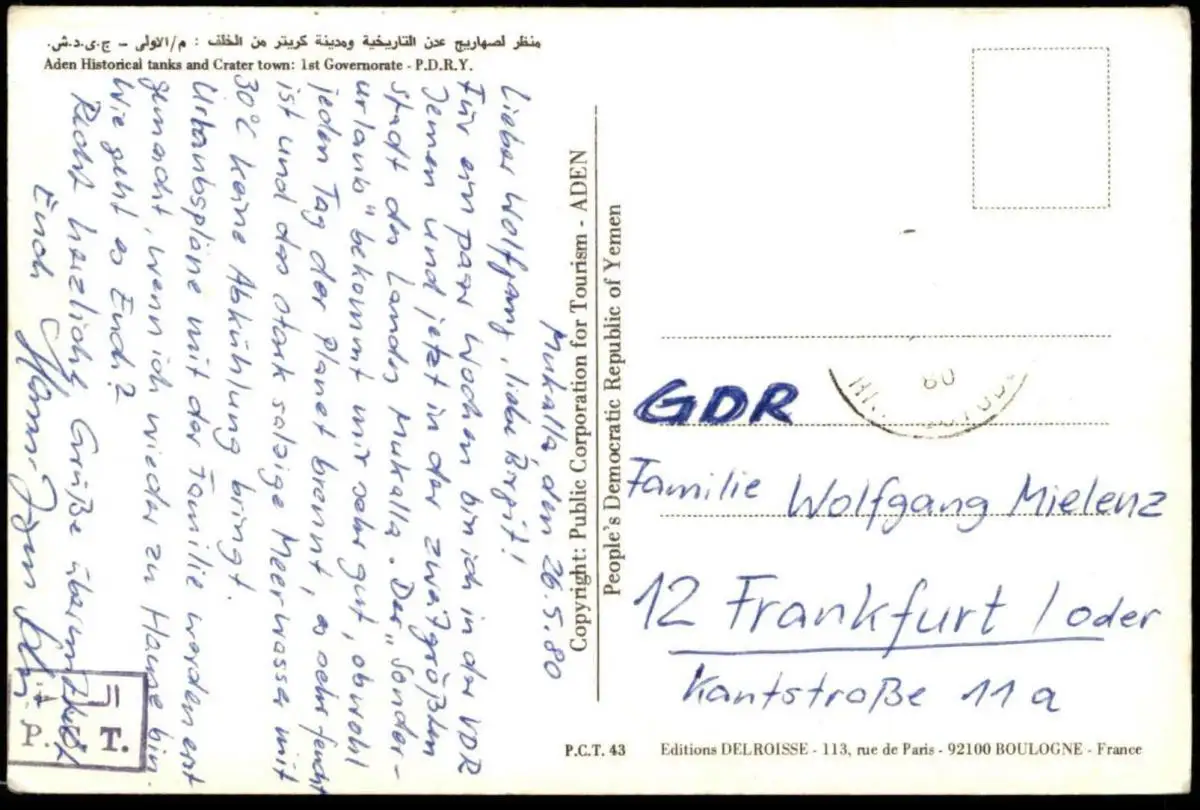 منظر لصهاريج عدن التاريخية ومدينة كريتر من الخلف : م/الاولى – ج.ى.د.ش.
Aden Historical tanks and Crater town: 1st Governorate - P.D.R.Y.
Mukalla, den 26.5.80
Lieber Wolfgang, liebe Birgit!
Für ein paar Wochen bin ich in der VDR
Jemen und jetzt in der zweitgrößten
Stadt des Landes Mukalla. Der „Sonder-
urlaub" bekommt mir sehr gut, obwohl
jeden Tag der Planet brennt, es sehr feucht
ist und das stark salzige Meerwasser mit
30°C keine Abkühlung bringt.
Urlaubspläne mit der Familie werden erst
gemacht, wenn ich wieder zu Hause bin.
Wie geht es Euch?
Recht herzliche Grüße übermittelt
Euch
Copyright: Public Corporation for Tourism - ADEN
People's Democratic Republic of Yemen
80
GDR
Familie Wolfgang Mielenz
12 Frankfurt / oder
Kantstraße 11a
P. T.
P.C.T. 43
Editions DELROISSE - 113, rue de Paris - 92100 BOULOGNE - France